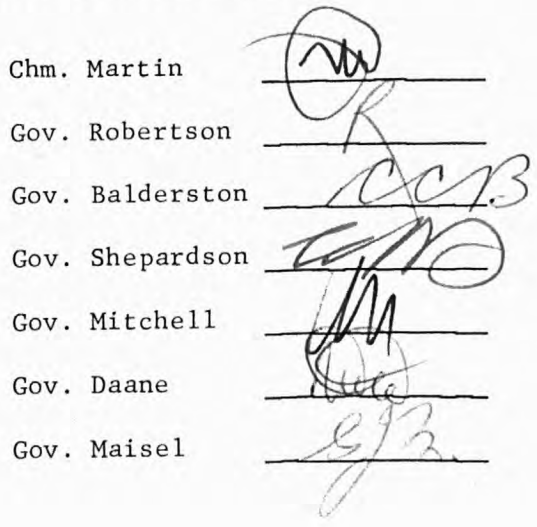 Chm. Martin M
Gov. Robertson R
Gov. Balderston CCB
Gov. Shepardson
Gov. Mitchell M
Gov. Daane
Gov. Maisel